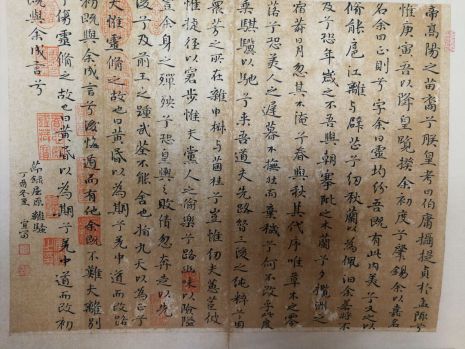 帝高陽之苗裔兮朕皇考曰伯庸攝提貞於孟陬兮
惟庚寅吾以降皇覽揆余初度兮肇錫余以嘉名
名余曰正則兮字余曰靈均紛吾既有此內美兮又之以
能扈江離與辟芷兮紉秋蘭以為佩汨余若將不
及兮恐年歲之不吾與朝搴阰之木蘭兮夕攬洲之
宿莽日月忽其不淹兮春與秋其代序惟草木之零
落兮恐美人之遲暮不撫壯而棄穢兮何不改此度
乘騏驥以馳兮來吾道夫先路昔三後之純粹兮固
眾芳之所在雜申椒與菌桂兮豈惟紉夫蕙茝彼
夫捷徑以窘步惟夫黨人之偷樂兮路幽昧以險隘
豈余身之殫殃兮恐皇輿之敗績忽奔走以先
後兮及前王之踵武荃不能舍也指九天以為正兮
夫惟靈脩之故也曰黃昏以為期兮羌中道而改路
初既與余成言兮後悔遁而有他余既不難夫離別
兮傷靈脩之故也曰黃昏以為期兮羌中道而改初
既與余成言兮
節錄屈原離騷
丁酉冬